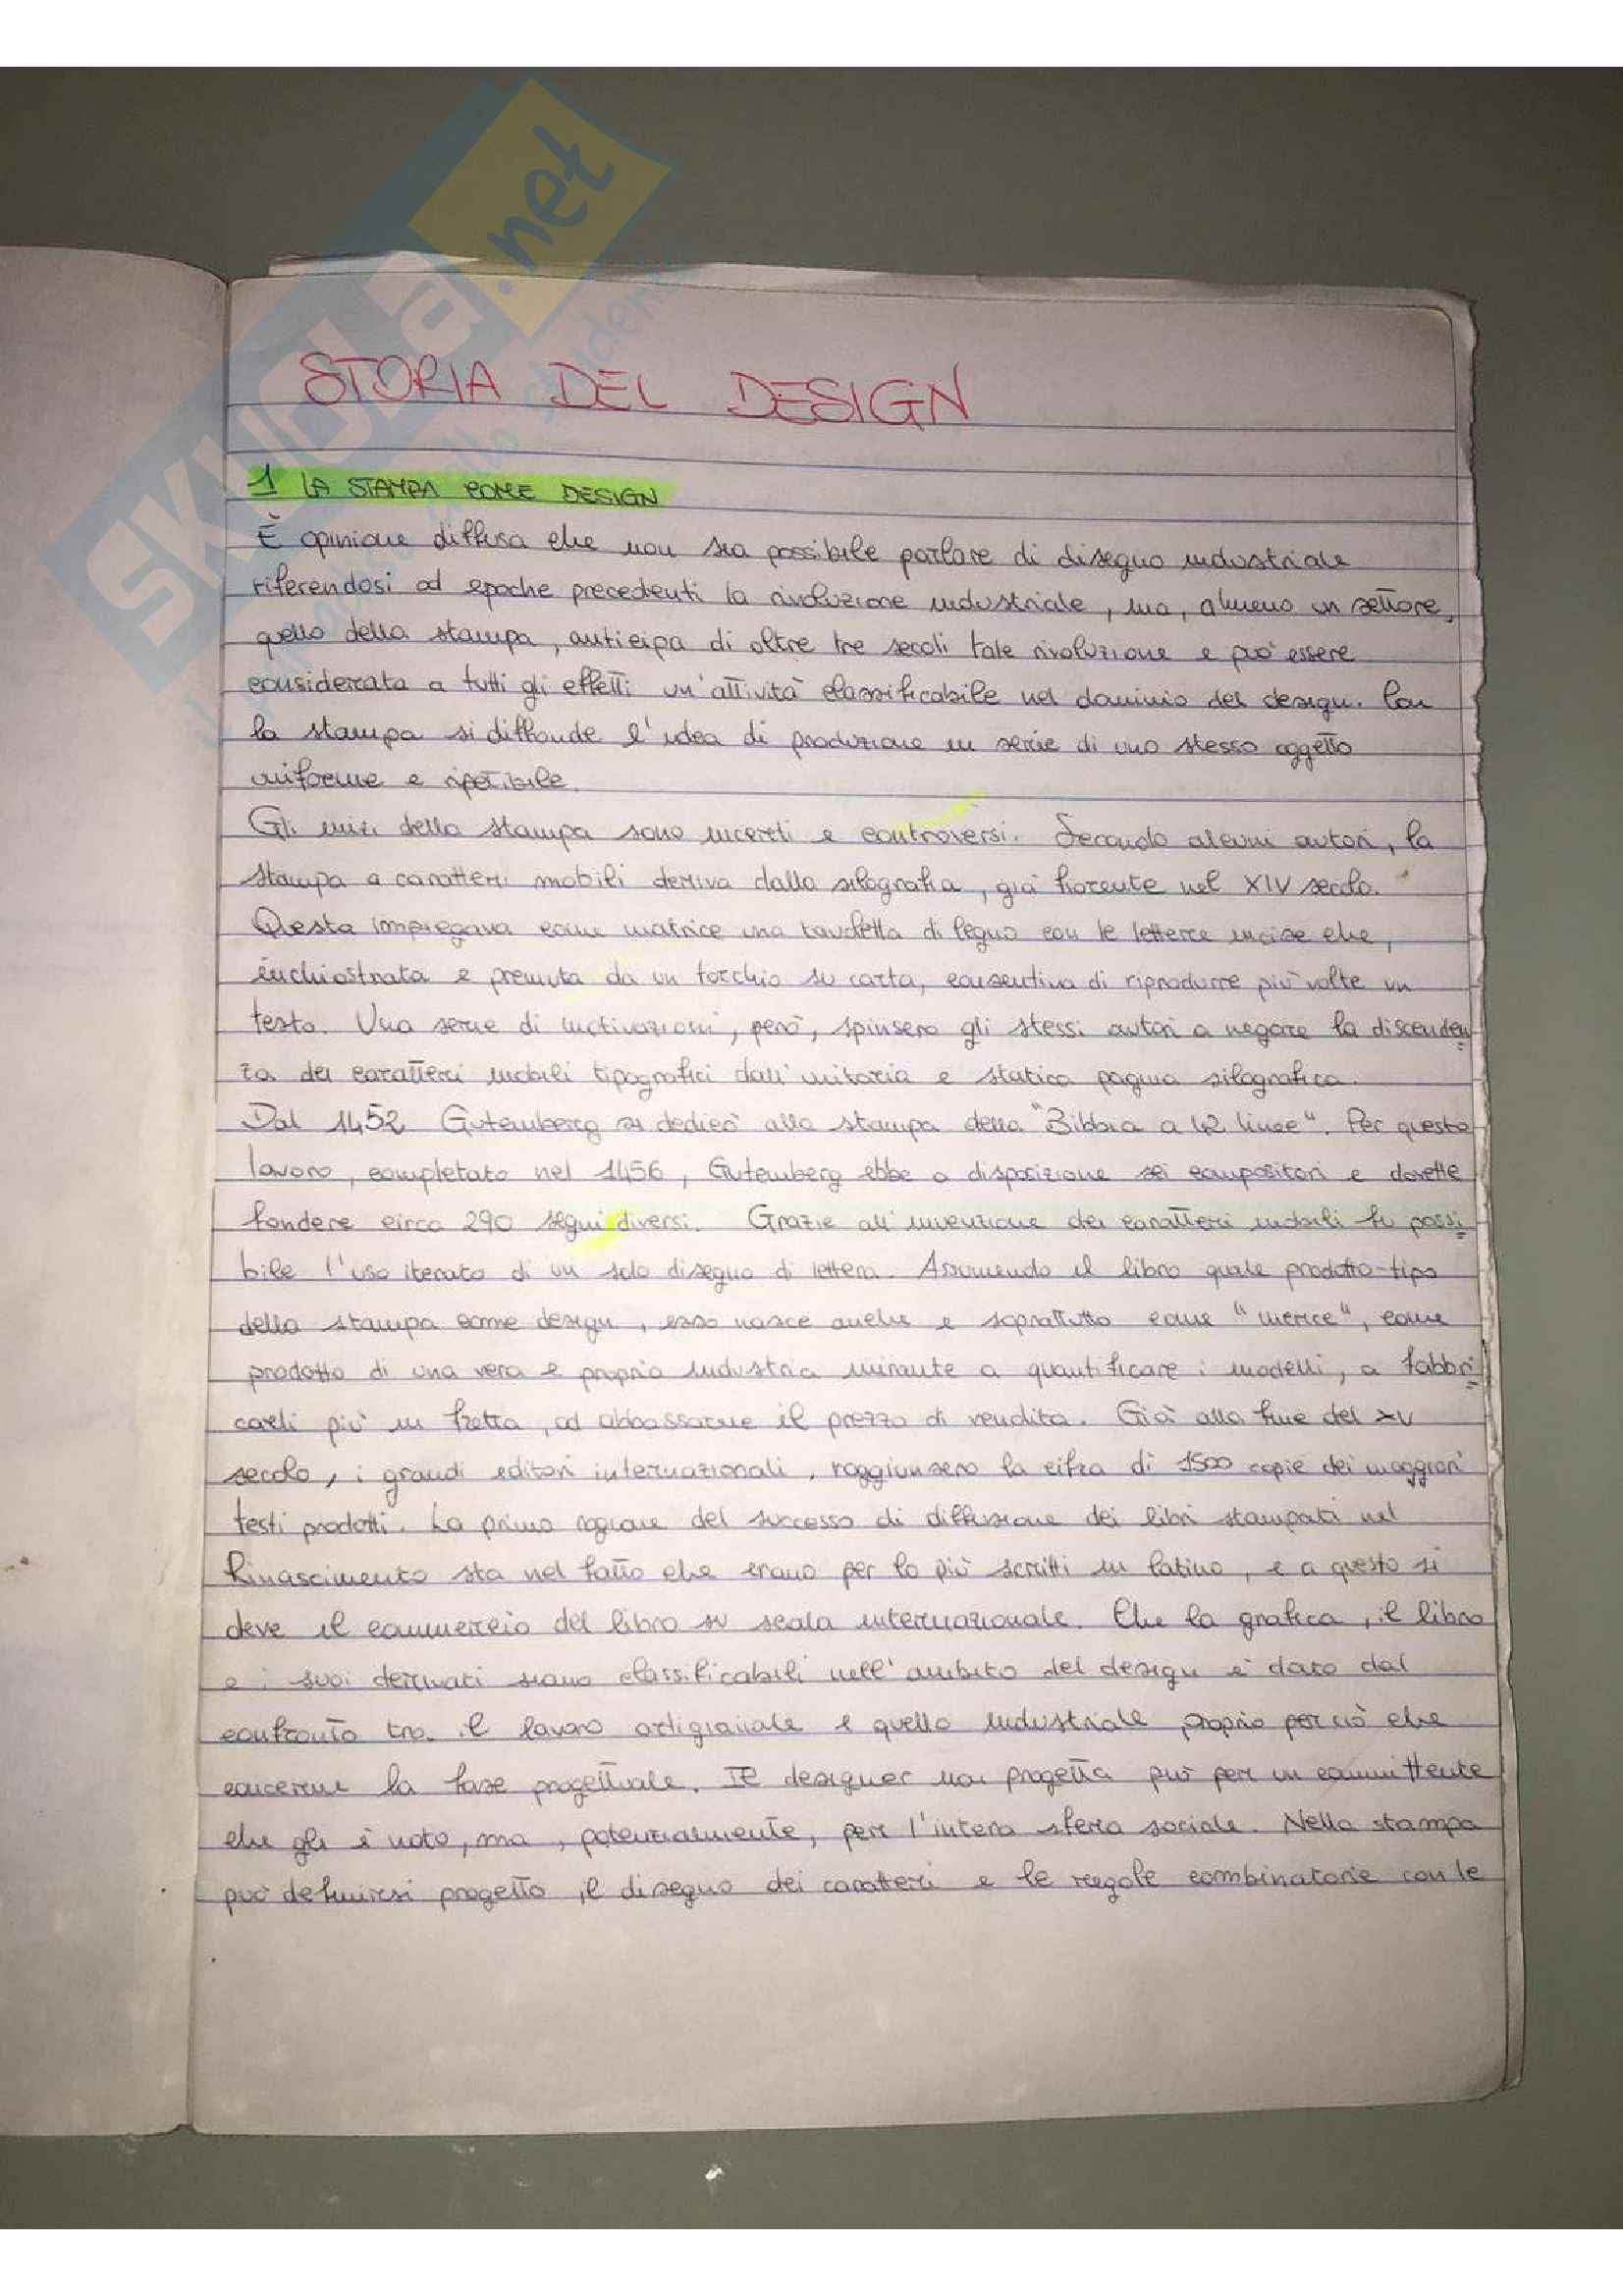 SKUOLA.net
STORIA DEL DESIGN
1 LA STAMPA COME DESIGN
È opinione diffusa che non sia possibile parlare di disegno industriale
riferendosi ad epoche precedenti la rivoluzione industriale, ma, almeno un settore,
quello della stampa, anticipa di oltre tre secoli tale rivoluzione e può essere
considerata a tutti gli effetti un'attività classificabile nel dominio del design. Con
la stampa si diffonde l'idea di produzione in serie di uno stesso oggetto
uniforme e ripetibile.
Gli inizi della stampa sono incerti e controversi. Secondo alcuni autori, la
stampa a caratteri mobili deriva dalla silografia, già fiorente nel XIV secolo.
Questa impiegava come matrice una tavoletta di legno con le lettere incise che,
inchiostrata e premuta da un torchio su carta, consentiva di riprodurre più volte un
testo. Una serie di motivazioni, però, spinsero gli stessi autori a negare la discenden
za dei caratteri mobili tipografici dall'unitaria e statica pagina silografica.
Dal 1452 Gutemberg si dedicò alla stampa della "Bibbia a 42 linee". Per questo
lavoro, completato nel 1456, Gutemberg ebbe a disposizione sei compositori e dovette
fondere circa 290 segni diversi. Grazie all'invenzione dei caratteri mobili fu possi
bile l'uso iterato di un solo disegno di lettera. Assumendo il libro quale prodotto-tipo
della stampa come design, esso nasce anche e soprattutto come "merce", come
prodotto di una vera e propria industria mirante a quantificare i modelli, a fabbri
carli più in fretta, ad abbassarne il prezzo di vendita. Già alla fine del XV
secolo, i grandi editori internazionali, raggiunsero la cifra di 1500 copie dei maggiori
testi prodotti. La prima ragione del successo di diffusione dei libri stampati nel
Rinascimento sta nel fatto che erano per lo più scritti in latino, e a questo si
deve il commercio del libro su scala internazionale. Che la grafica, il libro
e i suoi derivati siano classificabili nell'ambito del design è dato dal
confronto tra il lavoro artigianale e quello industriale proprio per ciò che
concerne la fase progettuale. Il designer non progetta più per un committente
che gli è noto, ma, potenzialmente, per l'intera sfera sociale. Nella stampa
può definirsi progetto il disegno dei caratteri e le regole combinatorie con le